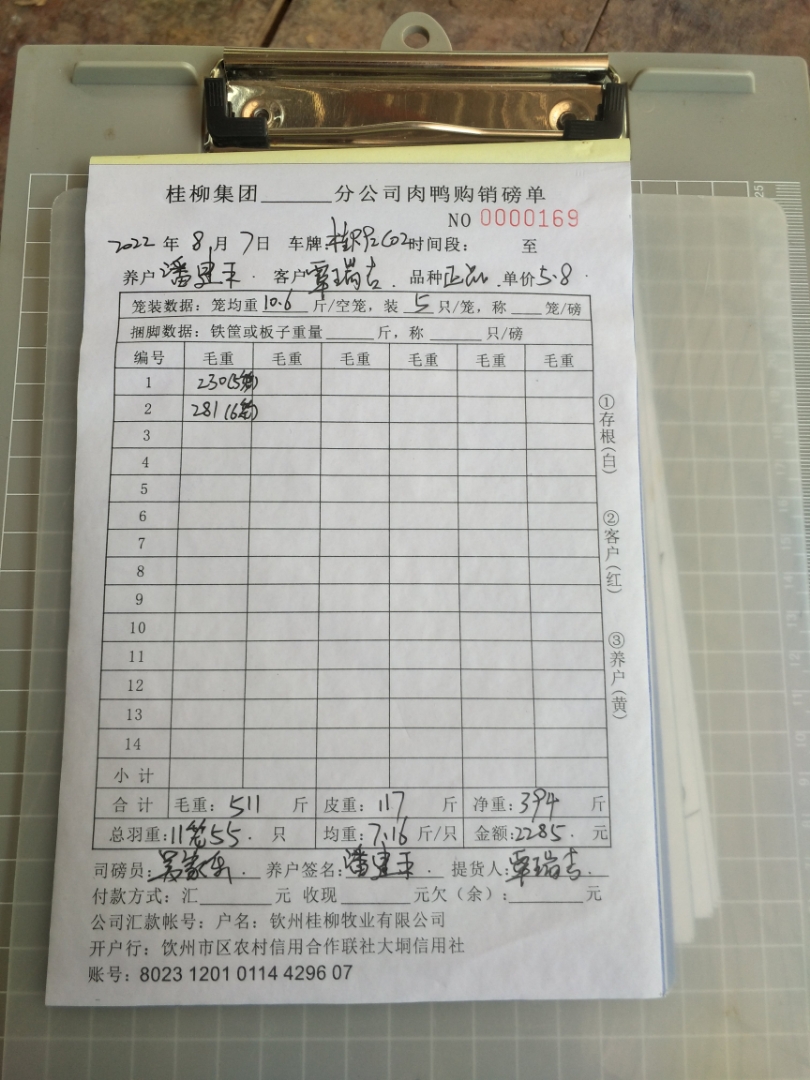 桂柳集团______分公司肉鸭购销磅单
NO 0000169
2022年8月7日 车牌: 时间段: 至
养户潘建平. 客户覃瑞吉. 品种正品.单价5.8
笼装数据:笼均重10.6斤/空笼,装5只/笼,称____笼/磅
捆脚数据:铁筐或板子重量______斤,称______只/磅
编号 毛重 毛重 毛重 毛重 毛重 毛重
1 230(5笼)
2 281(6笼)
3
4
5
6
7
8
9
10
11
12
13
14
小计
合计 毛重:511斤 皮重:117斤 净重:394斤
总羽重:11笼55.只 均重:7.16斤/只 金额:2285.元
司磅员: 养户签名:潘建平. 提货人:覃瑞吉.
付款方式:汇________元 收现________元欠(余):________元
公司汇款帐号:户名:钦州桂柳牧业有限公司
开户行:饮州市区农村信用合作联社大垌信用社
账号:8023 1201 0114 4296 07
①存根(白)
②客户(红)
③养户(黄)
25